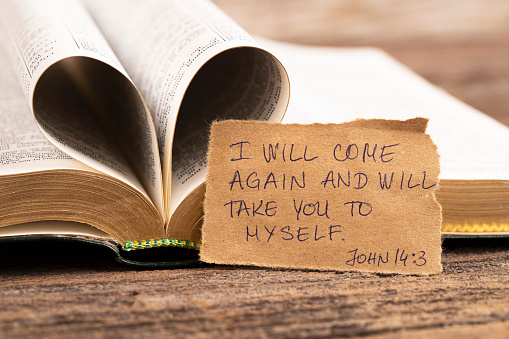 I WILL COME
AGAIN AND WILL
TAKE YOU TO
MYSELF.
JOHN 14:3